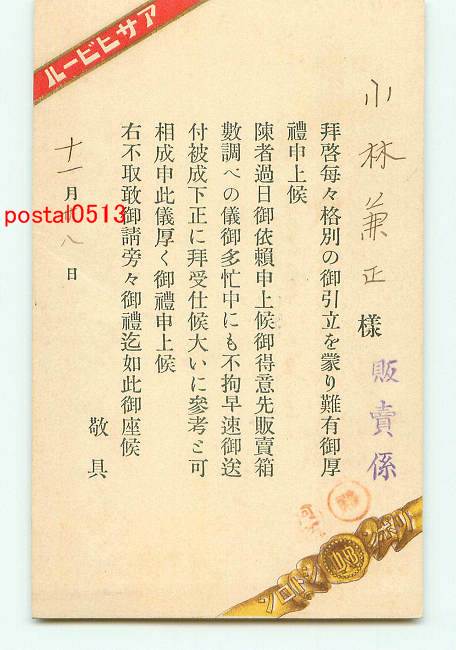 アサヒビール
小林兼正様
販賣係
拜啓每々格別の御引立を蒙り難有御厚
禮申上候
陳者過日御依賴申上候御得意先販賣箱
數調べの儀御多忙中にも不拘早速御送
付被成下正に拜受仕候大いに參考と可
相成申此儀厚く御禮申上候
右不取敢御請旁々御禮迄如此御座候
敬具
十一月 八日
postal0513
リボンシトロン